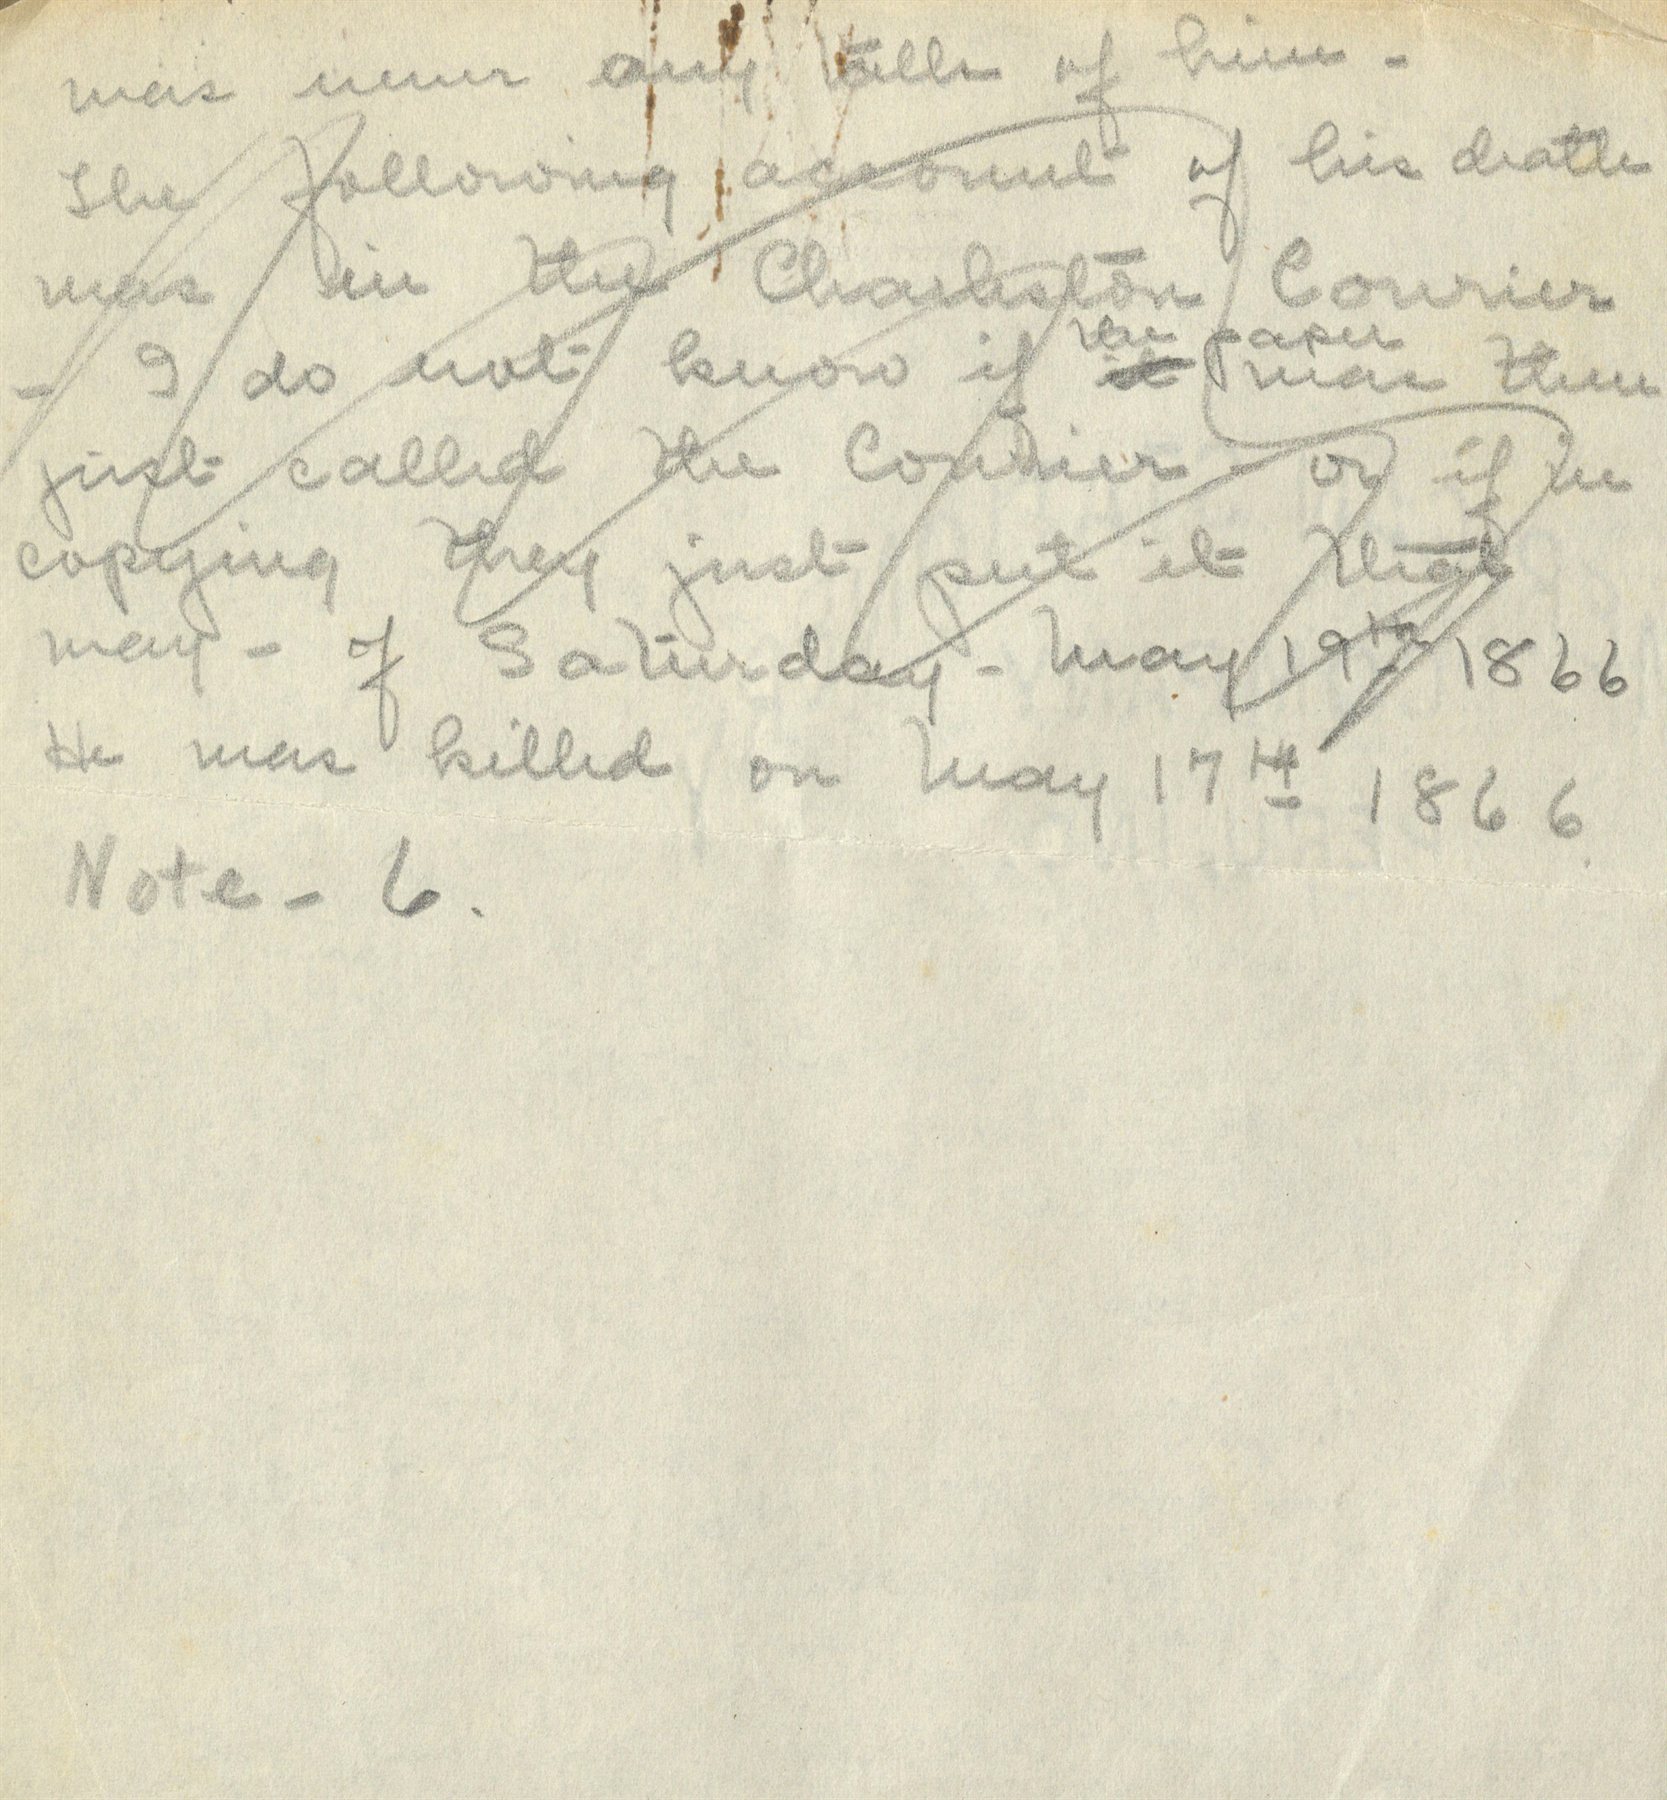 was never any talk of him -
The following account of his death
was in the Charleston Courier
the paper
- I do not know if it was then
just called the Courier - or if in
copying they just put it that
way - of Saturday - May 19th 1866
He was killed on May 17th 1866.
Note - 6.